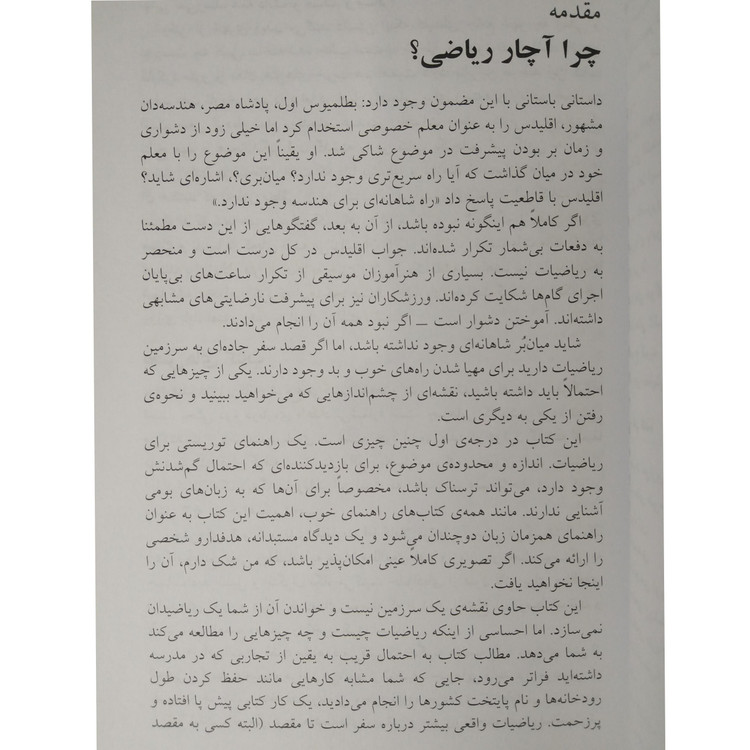 مقدمه
چرا آچار ریاضی؟
داستانی باستانی با این مضمون وجود دارد: بطلمیوس اول، پادشاه مصر، هندسه‌دان
مشهور، اقلیدس را به عنوان معلم خصوصی استخدام کرد اما خیلی زود از دشواری
و زمان بر بودن پیشرفت در موضوع شاکی شد. او یقیناً این موضوع را با معلم
خود در میان گذاشت که آیا راه سریع‌تری وجود ندارد؟ میان‌بری؟، اشاره‌ای شاید؟
اقلیدس با قاطعیت پاسخ داد «راه شاهانه‌ای برای هندسه وجود ندارد.»
اگر کاملاً هم اینگونه نبوده باشد، از آن به بعد، گفتگوهایی از این دست مطمئنا
به دفعات بی‌شمار تکرار شده‌اند. جواب اقلیدس در کل درست است و منحصر
به ریاضیات نیست. بسیاری از هنرآموزان موسیقی از تکرار ساعت‌های بی‌پایان
اجرای گام‌ها شکایت کرده‌اند. ورزشکاران نیز برای پیشرفت نارضایتی‌های مشابهی
داشته‌اند. آموختن دشوار است – اگر نبود همه آن را انجام می‌دادند.
شاید میان‌بُر شاهانه‌ای وجود نداشته باشد، اما اگر قصد سفر جاده‌ای به سرزمین
ریاضیات دارید برای مهیا شدن راه‌های خوب و بد وجود دارند. یکی از چیزهایی که
احتمالاً باید داشته باشید، نقشه‌ای از چشم‌اندازهایی که می‌خواهید ببینید و نحوه‌ی
رفتن از یکی به دیگری است.
این کتاب در درجه‌ی اول چنین چیزی است. یک راهنمای توریستی برای
ریاضیات. اندازه و محدوده‌ی موضوع، برای بازدیدکننده‌ای که احتمال گم‌شدنش
وجود دارد، می‌تواند ترسناک باشد، مخصوصاً برای آن‌ها که به زبان‌های بومی
آشنایی ندارند. مانند همه‌ی کتاب‌های راهنمای خوب، اهمیت این کتاب به عنوان
راهنمای همزمان زبان دوچندان می‌شود و یک دیدگاه مستبدانه، هدفدارو شخصی
را ارائه می‌کند. اگر تصویری کاملاً عینی امکان‌پذیر باشد، که من شک دارم، آن را
اینجا نخواهید یافت.
این کتاب حاوی نقشه‌ی یک سرزمین نیست و خواندن آن از شما یک ریاضیدان
نمی‌سازد. اما احساسی از اینکه ریاضیات چیست و چه چیزهایی را مطالعه می‌کند
به شما می‌دهد. مطالب کتاب به احتمال قریب به یقین از تجاربی که در مدرسه
داشته‌اید فراتر می‌رود، جایی که شما مشابه کارهایی مانند حفظ کردن طول
رودخانه‌ها و نام پایتخت کشورها را انجام می‌دادید، یک کار کتابی پیش پا افتاده و
پرزحمت. ریاضیات واقعی بیشتر درباره سفر است تا مقصد (البته کسی به مقصد